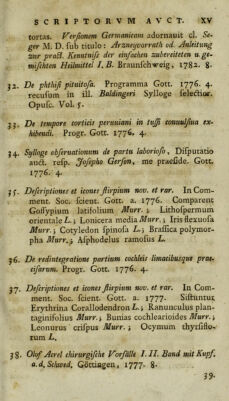 SCRIPTORVM AVCT. XV
tortas. Versionem Germanicam adornauit cl. Se-
ger M. D. sub titulo: Arzneyvorrath od. Anleitung
zur pract. Kenntniss der einfachen zubereiteten u. ge-
mischten Heilmittel I. B. Braunschweig, 1782. 8.
32. De phthisi pituitosa. Programma Gott. 1776. 4.
recusum in ill. Baldingeri Sylloge selectior.
Opusc. Vol. 5.
33. De tempore corticis peruuiani in tussi conuulsiua ex-
hibendi. Progr. Gott. 1776. 4.
34. Sylloge observationum de partu laborioso, Disputatio
auct. resp. Josepho Gersom, me praeside. Gott.
1776. 4.
35. Descriptiones et icones stirpium nov. et rar. In Com-
ment. Soc. scient. Gott. a. 1776. Comparent
Gossypium latifolium Murr. ; Lithospermum
orientale L. ; Lonicera media Murr. ; Iris flexuosa
Murr. ; Cotyledon spinosa L. ; Brassica polymor-
pha Murr. ; Asphodelus ramosus L.
36. De redintegratione partium cochleis limacibusque prae-
cisarum. Progr. Gott. 1776. 4.
37. Descriptiones et icones stirpium nov. et rar. In Com-
ment. Soc. scient. Gott. a. 1777. Sistuntur
Erythrina Corallodendron L. ; Ranunculus plan-
taginifolius Murr. ; Bunias cochlearioides Murr. ;
Leonurus crispus Murr. ; Ocymum thyrsiflo-
rum L.
38. Olof Acrel chirurgische Vorfälle I. II. Band mit Kupf.
a. d. Schwed. Göttingen, 1777. 8.
39.